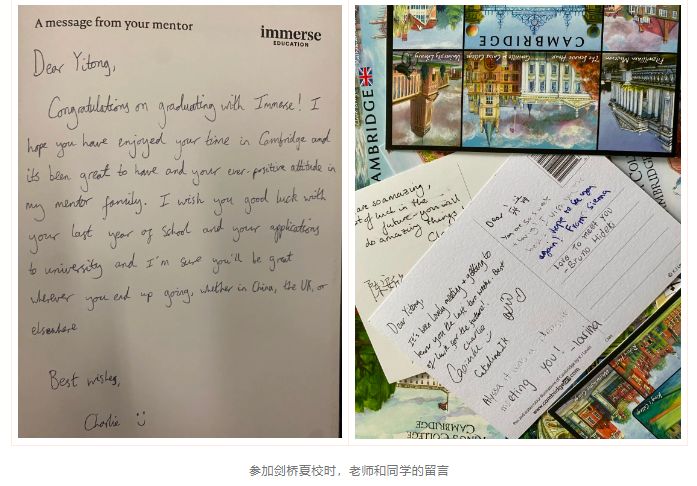 A message from your mentor
immerse
EDUCATION
Dear Yitong,
Congratulations on graduating with Immerse! I
hope you have enjoyed your time in Cambridge and
its been great to have and your ever-positive attitude in
my mentor family. I wish you good luck with
your last year of school and your applications
to university and I'm sure you'll be great
wherever you end up going, whether in China, the UK, or
elsewhere
Best wishes,
Charlie
CAMBRIDGE
University Library
The Senate House
Gonville & Caius College
Fitzwilliam Museum
CAMBRIDGE
are so amazing,
of luck in the
future - you will
do amazing things,
Dear
hope to see you
again! From Sienna
Love to meet you
- Bruno Hideki
Dear Yitong,
It's been lovely meeting + getting to
know you the last two weeks. Best
of luck for the future!
Charlie
Alyssa it was a
meeting you!
KING'S COLLEGE
CAMBRIDGE
参加剑桥夏校时，老师和同学的留言